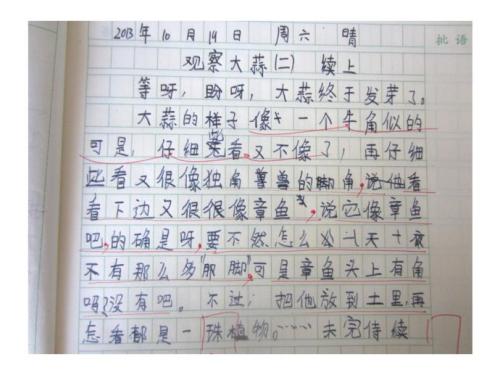 2013年10月19日 周六 晴
批语
观察大蒜(二) 续上
等呀，盼呀，大蒜终于发芽了。
大蒜的样子像一个牛角似的
可是，仔细看看又不像了，再仔细
看又很像独角兽的脚角，说他看
看下边又很很像章鱼，说它像章鱼
吧，的确是呀，要不然怎么
不有那么多"脚"，可是章鱼头上有角
吗？没有吧。不过，把他放到土里，再
怎看都是一珠植物。……未完待续